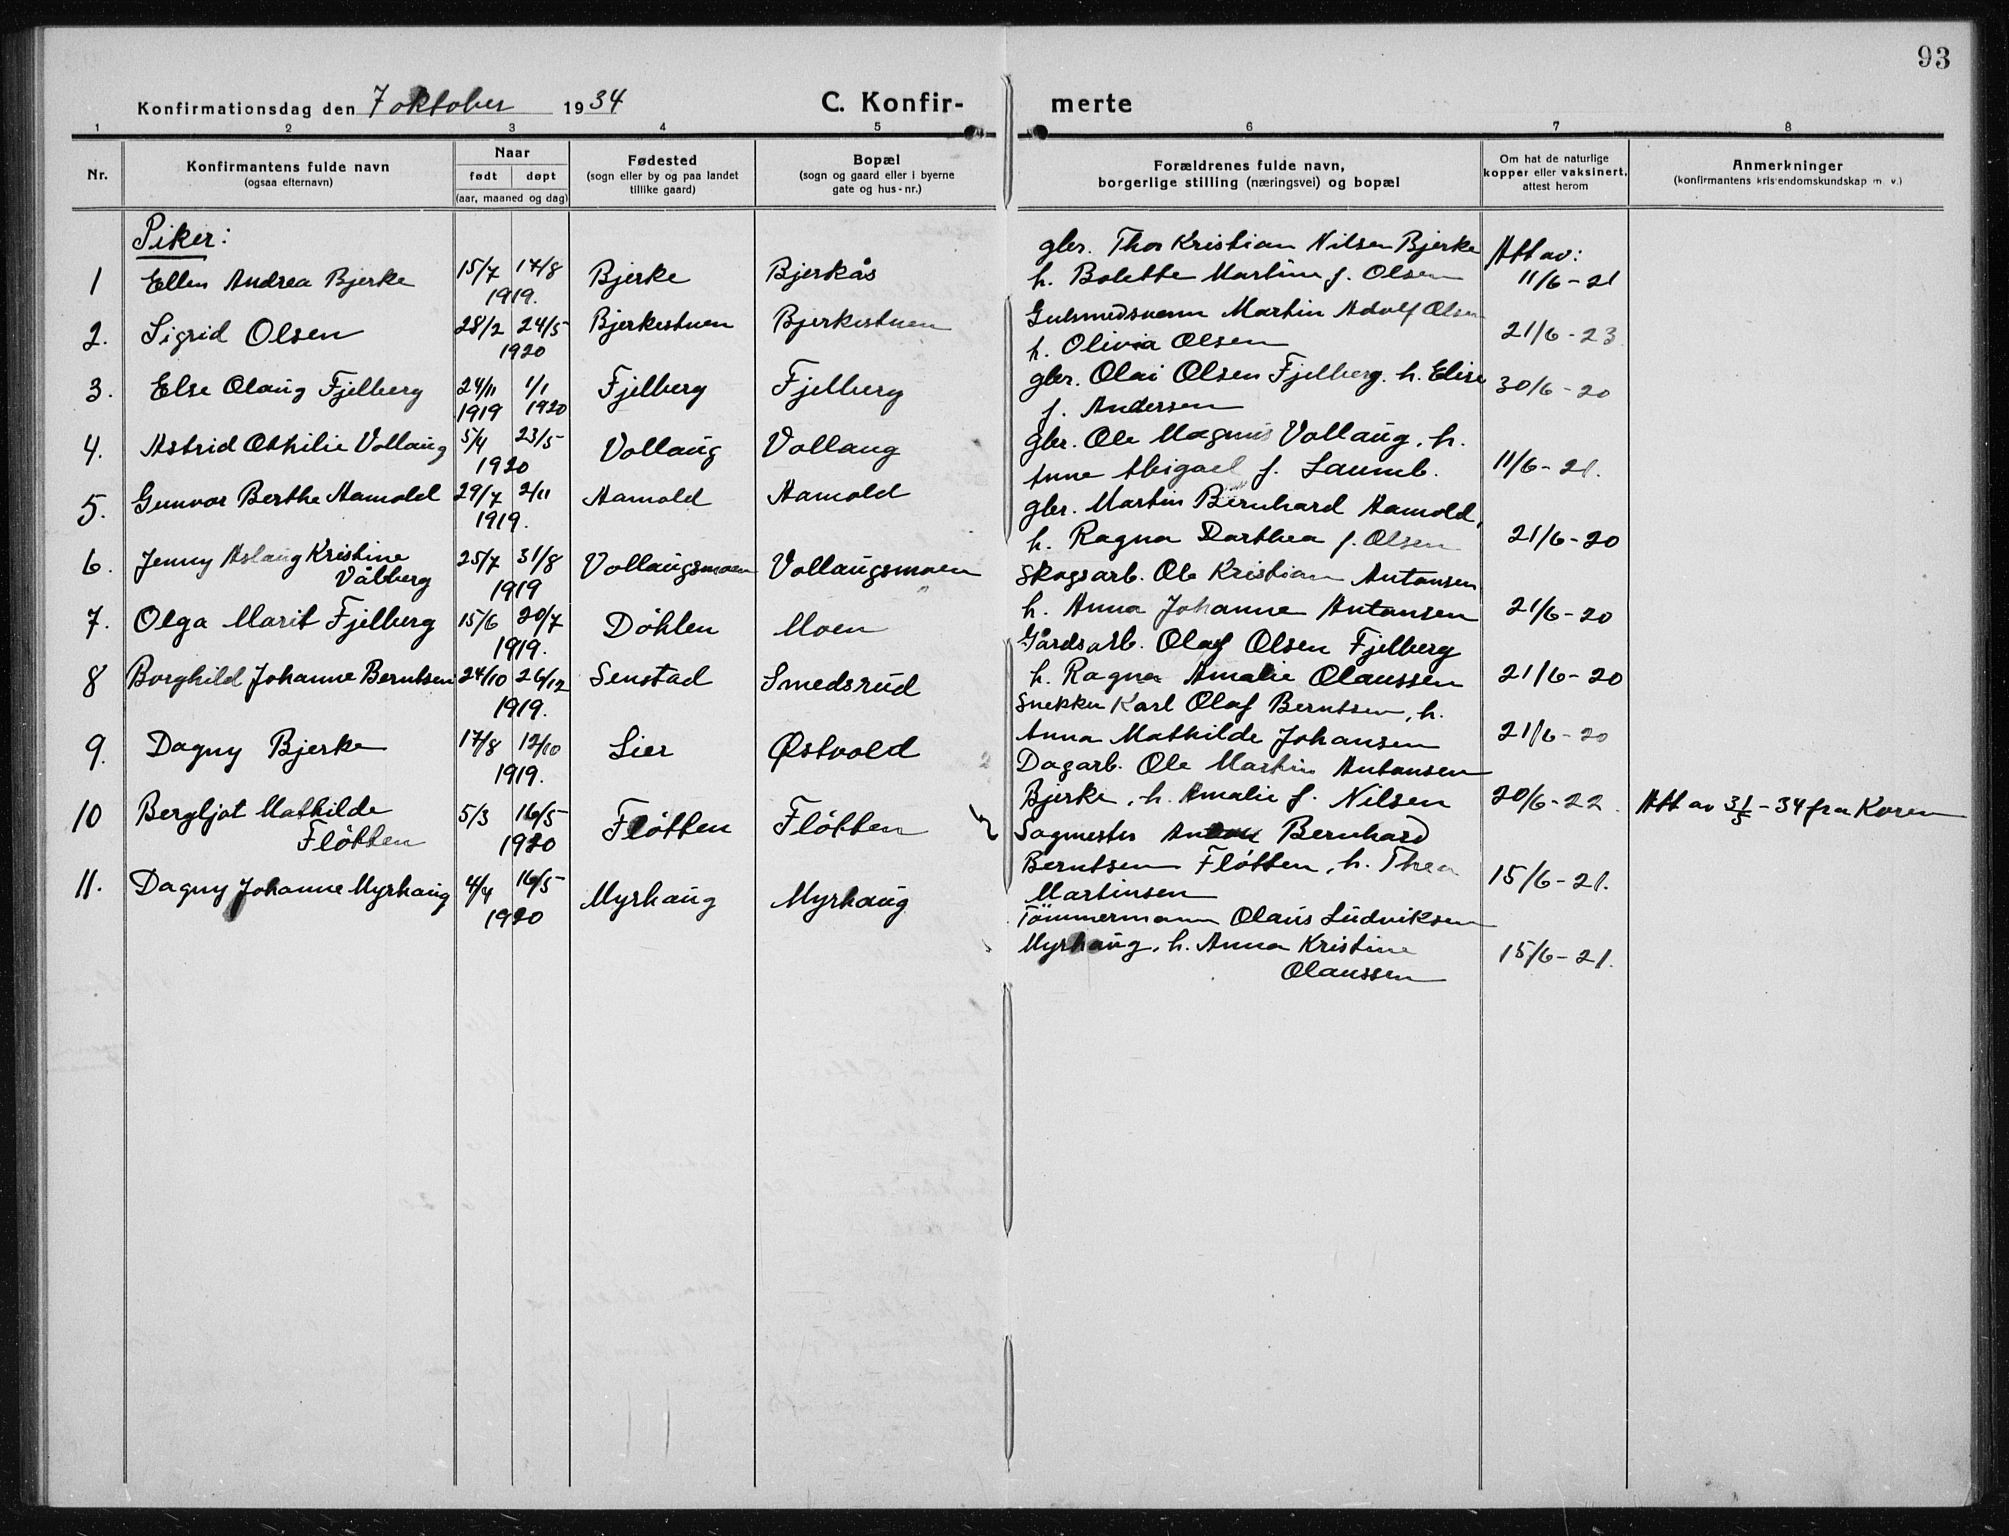 93
Konfirmationsdag den 7 oktober 1934
C. Konfir- merte
1 2 3 4 5 6 7 8
Nr.
Konfirmantens fulde navn
(ogsaa efternavn)
Naar
født døpt
(aar, maaned og dag)
Fødested
(sogn eller by og paa landet
tillike gaard)
Bopæl
(sogn og gaard eller i byerne
gate og hus-nr.)
Forældrenes fulde navn,
borgerlige stilling (næringsvei) og bopæl
Om hat de naturlige
kopper eller vaksinert,
attest herom
Anmerkninger
(konfirmantens kristendomskundskap m. v.)
Piker:
1 Ellen Andrea Bjerke 15/7 17/8 Bjerke Bjerkås
1919.
gbr. Thor Kristian Nilsen Bjerke Att av:
h. Bolette Martine f. Olsen 11/6-21
2. Sigrid Olsen 28/2 24/5 Bjerkestuen Bjerkestuen
1920
Gulsmedsvenn Martin Adolf Olsen
h. Olivia Olsen 21/6-23
3. Else Olaug Fjelberg 24/11 1/1 Fjelberg Fjelberg
1919 1920
gbr. Olai Olsen Fjelberg. h. Elise 30/6-20
f. Andersen
4. Astrid Othilie Vollaug 5/4 23/5 Vollaug Vollaug
1920
gbr. Ole Magnus Vollaug, h.
Anne Abigael f. Laumb. 11/6-21.
5. Gunvor Berthe Aamold 29/7 2/11 Aamold Aamold
1919.
gbr. Martin Bernhard Aamold,
h. Ragna Dorthea f. Olsen 21/6-20
6. Jenny Aslaug Kristine 25/7 31/8 Vollaugsmoen Vollaugsmoen
Vålberg 1919
Skogsarb. Ole Kristian Antonsen
h. Anna Johanne Antonsen 21/6-20
7. Olga Marit Fjelberg 15/6 20/7 Döhlen Moen
1919.
Gårdsarb. Olaf Olsen Fjelberg
h. Ragna Amalie Olaussen 21/6-20
8 Borghild Johanne Berntsen 24/10 26/12 Senstad Smedsrud
1919.
Snekker Karl Olaf Berntsen, h.
Anna Mathilde Johansen 21/6-20
9. Dagny Bjerke 17/8 12/10 Lier Østvold
1919.
Dagarb. Ole Martin Antonsen
Bjerke, h. Amalie f. Nilsen 20/6-22. Att av 31/5-34 fra Koren
10 Bergljot Mathilde 5/3 16/5 Fløtten Fløtten
Fløtten 1920
Sagmester Anton Bernhard
Berntsen Fløtten, h. Thea 15/6-21.
Martinsen
11. Dagny Johanne Myrhaug 4/4 16/5 Myrhaug Myrhaug
1920
Tömmermann Olaus Ludviksen
Myrhaug, h. Anna Kristine 15/6-21.
Olaussen